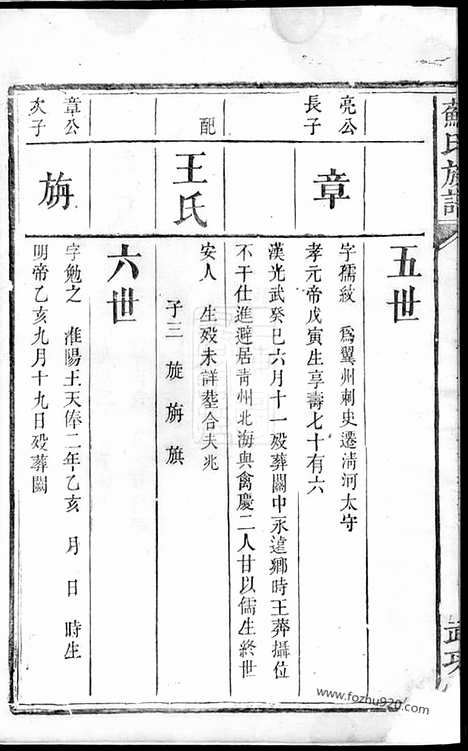 蘇氏族譜
五世
亮公
長子
章
字孺紋 為翼州刺史遷清河太守
孝元帝戊寅生享壽七十有六
漢光武癸巳六月十一歿葬關中永達鄉時王莽攝位
不干仕進避居青州北海與禽慶二人甘以儒生終世
配
王氏
安人 生歿未詳塟合夫兆
子三 旋 旃 旗
六世
章公
次子
旃
字勉之 淮陽王天俸二年乙亥 月 日 時生
明帝乙亥九月十九日歿葬關
武功
www.fozhu920.com